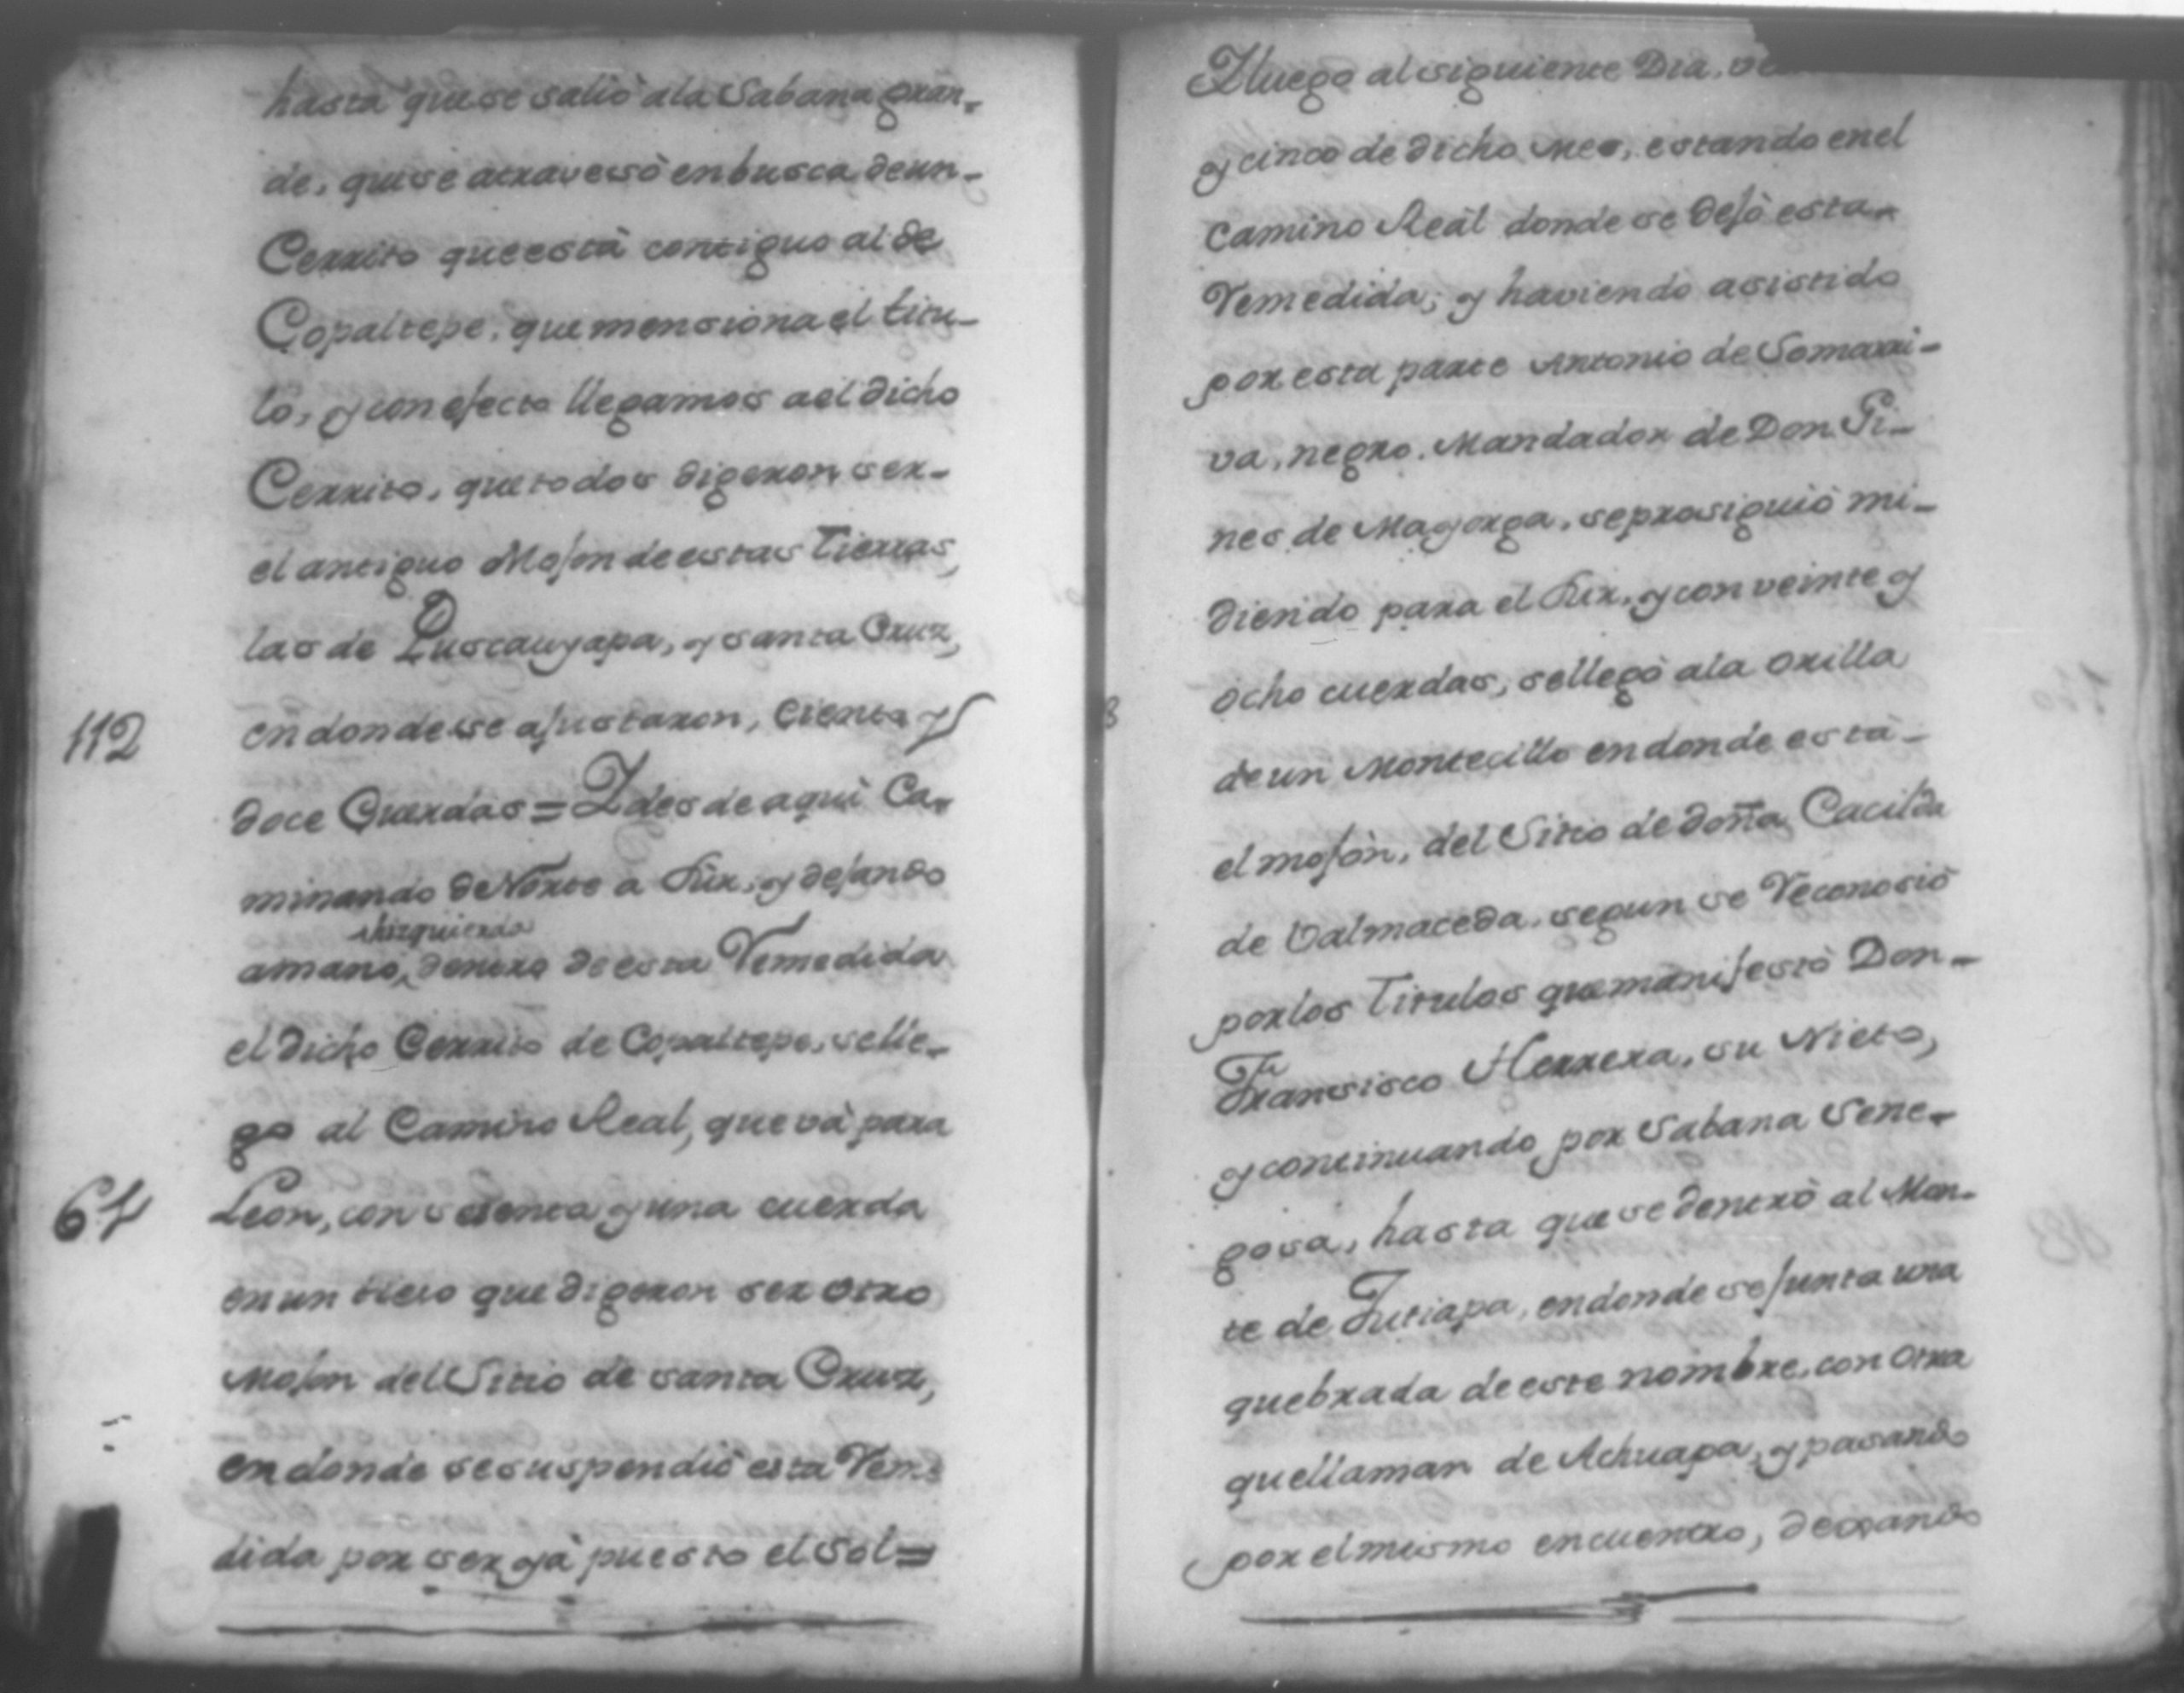 hasta que se salió ala Sabana gran-
de, que se atravesó en busca de un-
Cerrito que está contiguo al de
Copaltepe, que mensiona el titu-
lo, y con efecto llegamos a el dicho
Cerrito, que todos digeron ser-
el antiguo Mojon de estas Tierras,
las de Puscauyapa, y santa Cruz,
112 en donde se ajustaron, Ciento y
doce Cuerdas = Y desde aqui Ca-
minando de Norte a Sur, y dejando
Yzquierda
amano, dentro de esta Remedida
el dicho Cerrito de Copaltepe, selle-
go al Camino Real, que vá para
61 Leon, con sesenta y una cuerda
en un que digeron ser otro
Mojon del Sitio de santa Cruz,
en donde se suspendió esta Reme-
dida por ser yá puesto el Sol =
Y luego al siguiente Dia,
y cinco de dicho Mes, estando en el
Camino Reál donde se dejó esta-
Remedida; y haviendo asistido
por esta parte Antonio de Somarri-
va, negro, Mandador de Don Gi-
nes de Mayorga, se prosiguió mi-
diendo para el Sur, y con veinte y
8 ocho cuerdas, sellegó ala orilla
de un Montecillo en donde está-
el mojón, del Sitio de doña Cacilda
de Valmaceda, segun se Reconosió
por los Titulos que manifestó Don-
Fransisco Herrera, su Nieto,
y continuando por Sabana Sene-
gosa, hasta que se dentró al Mon-
te de Jutiapa, en donde se junta una
quebrada de este nombre, con otra
que llaman de Achuapa, y pasando
por el mismo encuentro, dexando